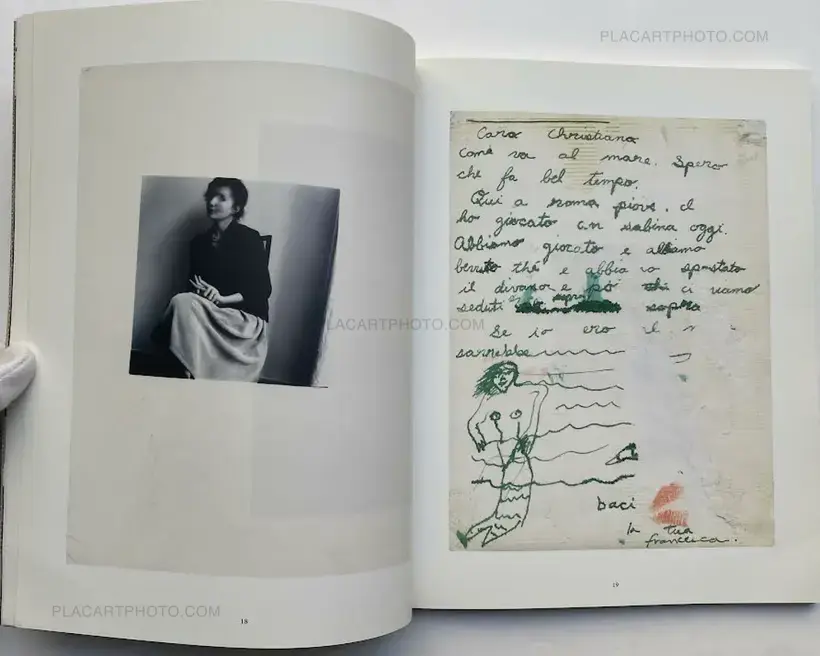 PLACARTPHOTO.COM
LACARTPHOTO.COM
PLACARTPHOTO.COM
18
Cara Christiana
Come va al mare. Spero
che fa bel tempo.
Qui a roma piove. Il
ho giocato con sabina oggi.
Abbiamo giocato e abbiamo
bevuto thé e abbia spostato
il divano e poi ci siamo
seduti sopra
Se io ero il
sarrebbe
baci
la tua
francesca.
19